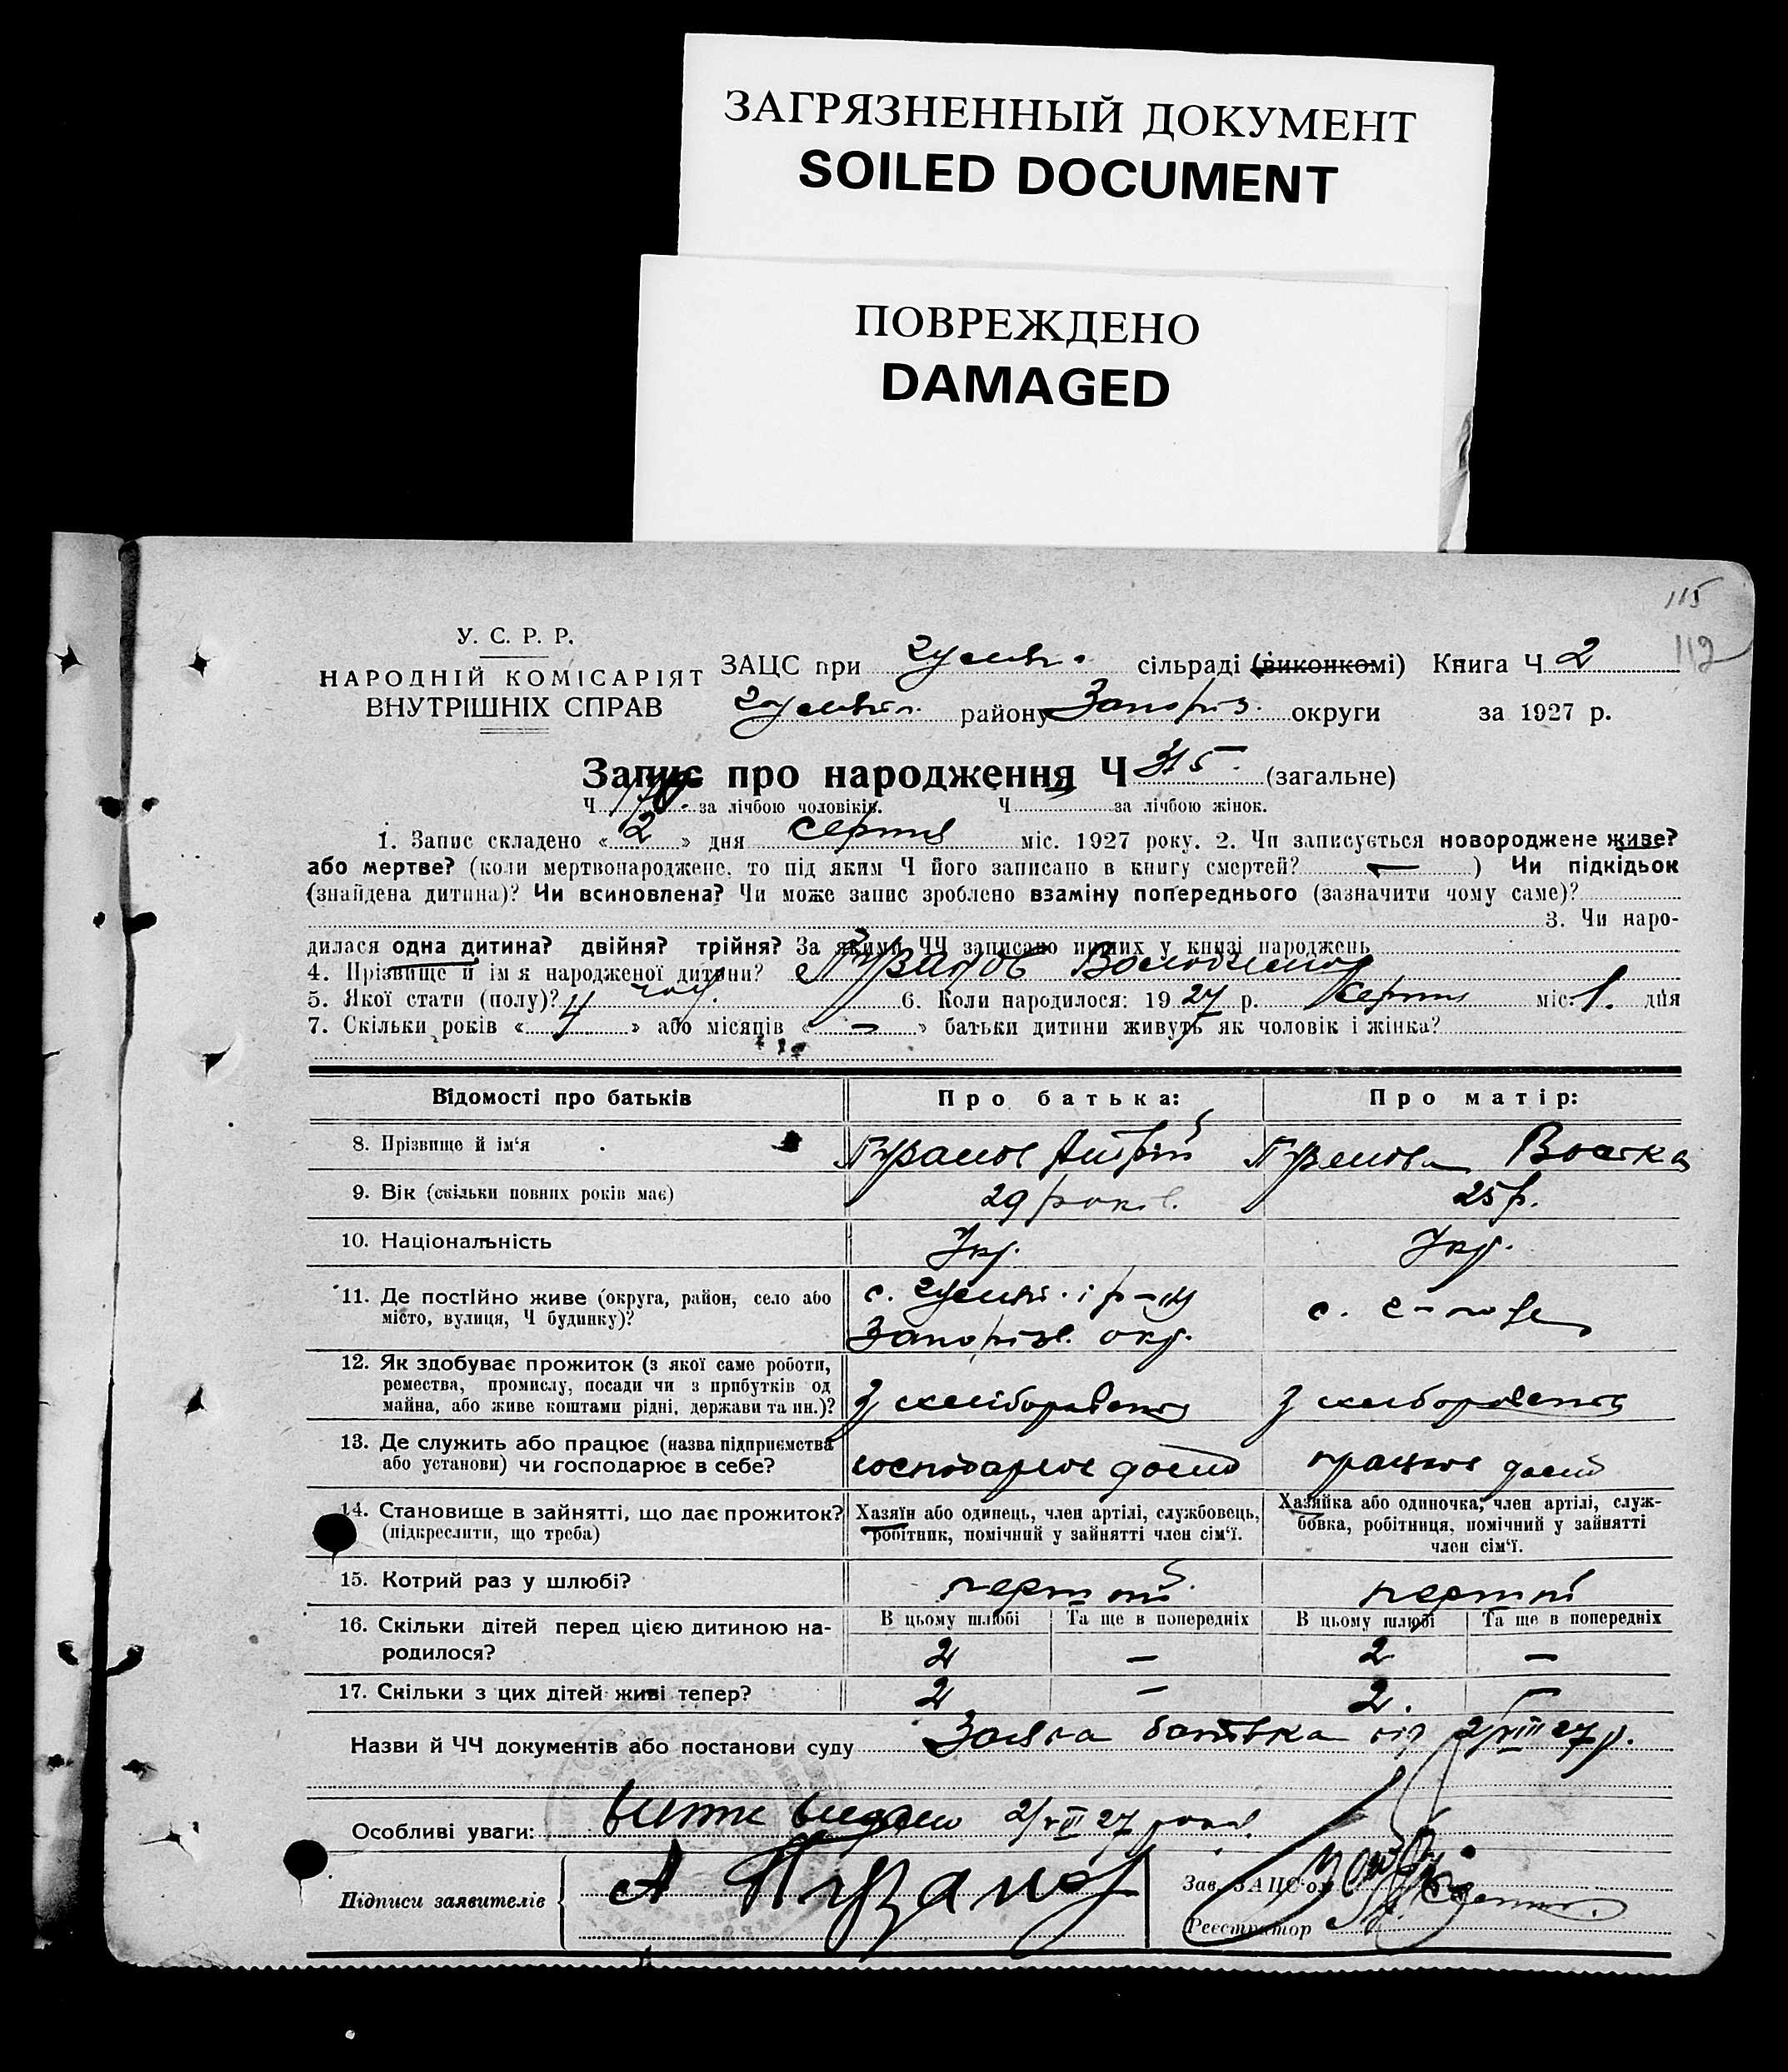 ЗАГРЯЗНЕННЫЙ ДОКУМЕНТ
SOILED DOCUMENT
ПОВРЕЖДЕНО
DAMAGED
115
112
У. С. Р. Р.
НАРОДНІЙ КОМІСАРІЯТ
ВНУТРІШНІХ СПРАВ
ЗАЦС при сільраді (виконкомі) Книга Ч 2
району Запоріз. округи за 1927 р.
Запис про народження Ч 315. (загальне)
Ч за лічбою чоловіків. Ч за лічбою жінок.
1. Запис складено « 2 » дня серпня міс. 1927 року. 2. Чи записується новороджене живе?
або мертве? (коли мертвонароджене, то під яким Ч його записано в книгу смертей? — ) Чи підкідьок
(знайдена дитина)? Чи всиновлена? Чи може запис зроблено взаміну попереднього (зазначити чому саме)?
3. Чи наро-
дилася одна дитина? двійня? трійня? За якими ЧЧ записано инших у книзі народжень
4. Прізвище й ім'я народженої дитини? Пузанов Володимир
5. Якої стати (полу)? чол. 6. Коли народилося: 1927 р. серпня міс. 1. дня
7. Скільки років « 4 » або місяців « — » батьки дитини живуть як чоловік і жінка?
Відомості про батьків Про батька: Про матір:
8. Прізвище й ім'я Пузанов Андрій Пузанова
9. Вік (скільки повних років має) 29 років. 25 р.
10. Національність Укр. Укр.
11. Де постійно живе (округа, район, село або
місто, вулиця, Ч будинку)?
с. і р-ну
Запорізь. окр.
с.
12. Як здобуває прожиток (з якої саме роботи,
ремества, промислу, посади чи з прибутків од
майна, або живе коштами рідні, держави та ин.)?
З хліборобства З хліборобства
13. Де служить або працює (назва підприємства
або установи) чи господарює в себе?
господарює дома працює дома
14. Становище в зайнятті, що дає прожиток?
(підкреслити, що треба)
Хазяїн або одинець, член артілі, службовець,
робітник, помічний у зайнятті член сім'ї.
Хазяйка або одиночка, член артілі, служ-
бовка, робітниця, помічний у зайнятті
член сім'ї.
15. Котрий раз у шлюбі? перший. перший
В цьому шлюбі Та ще в попередніх В цьому шлюбі Та ще в попередніх
16. Скільки дітей перед цією дитиною на-
родилося?
2 — 2 —
17. Скільки з цих дітей живі тепер? 2 — 2. —
Назви й ЧЧ документів або постанови суду Заява батька від 2/VIII 27 р.
Особливі уваги: видано 2/VIII 27 року.
Підписи заявителів А Пузанов
Зав. ЗАЦС'ом
Реєстратор